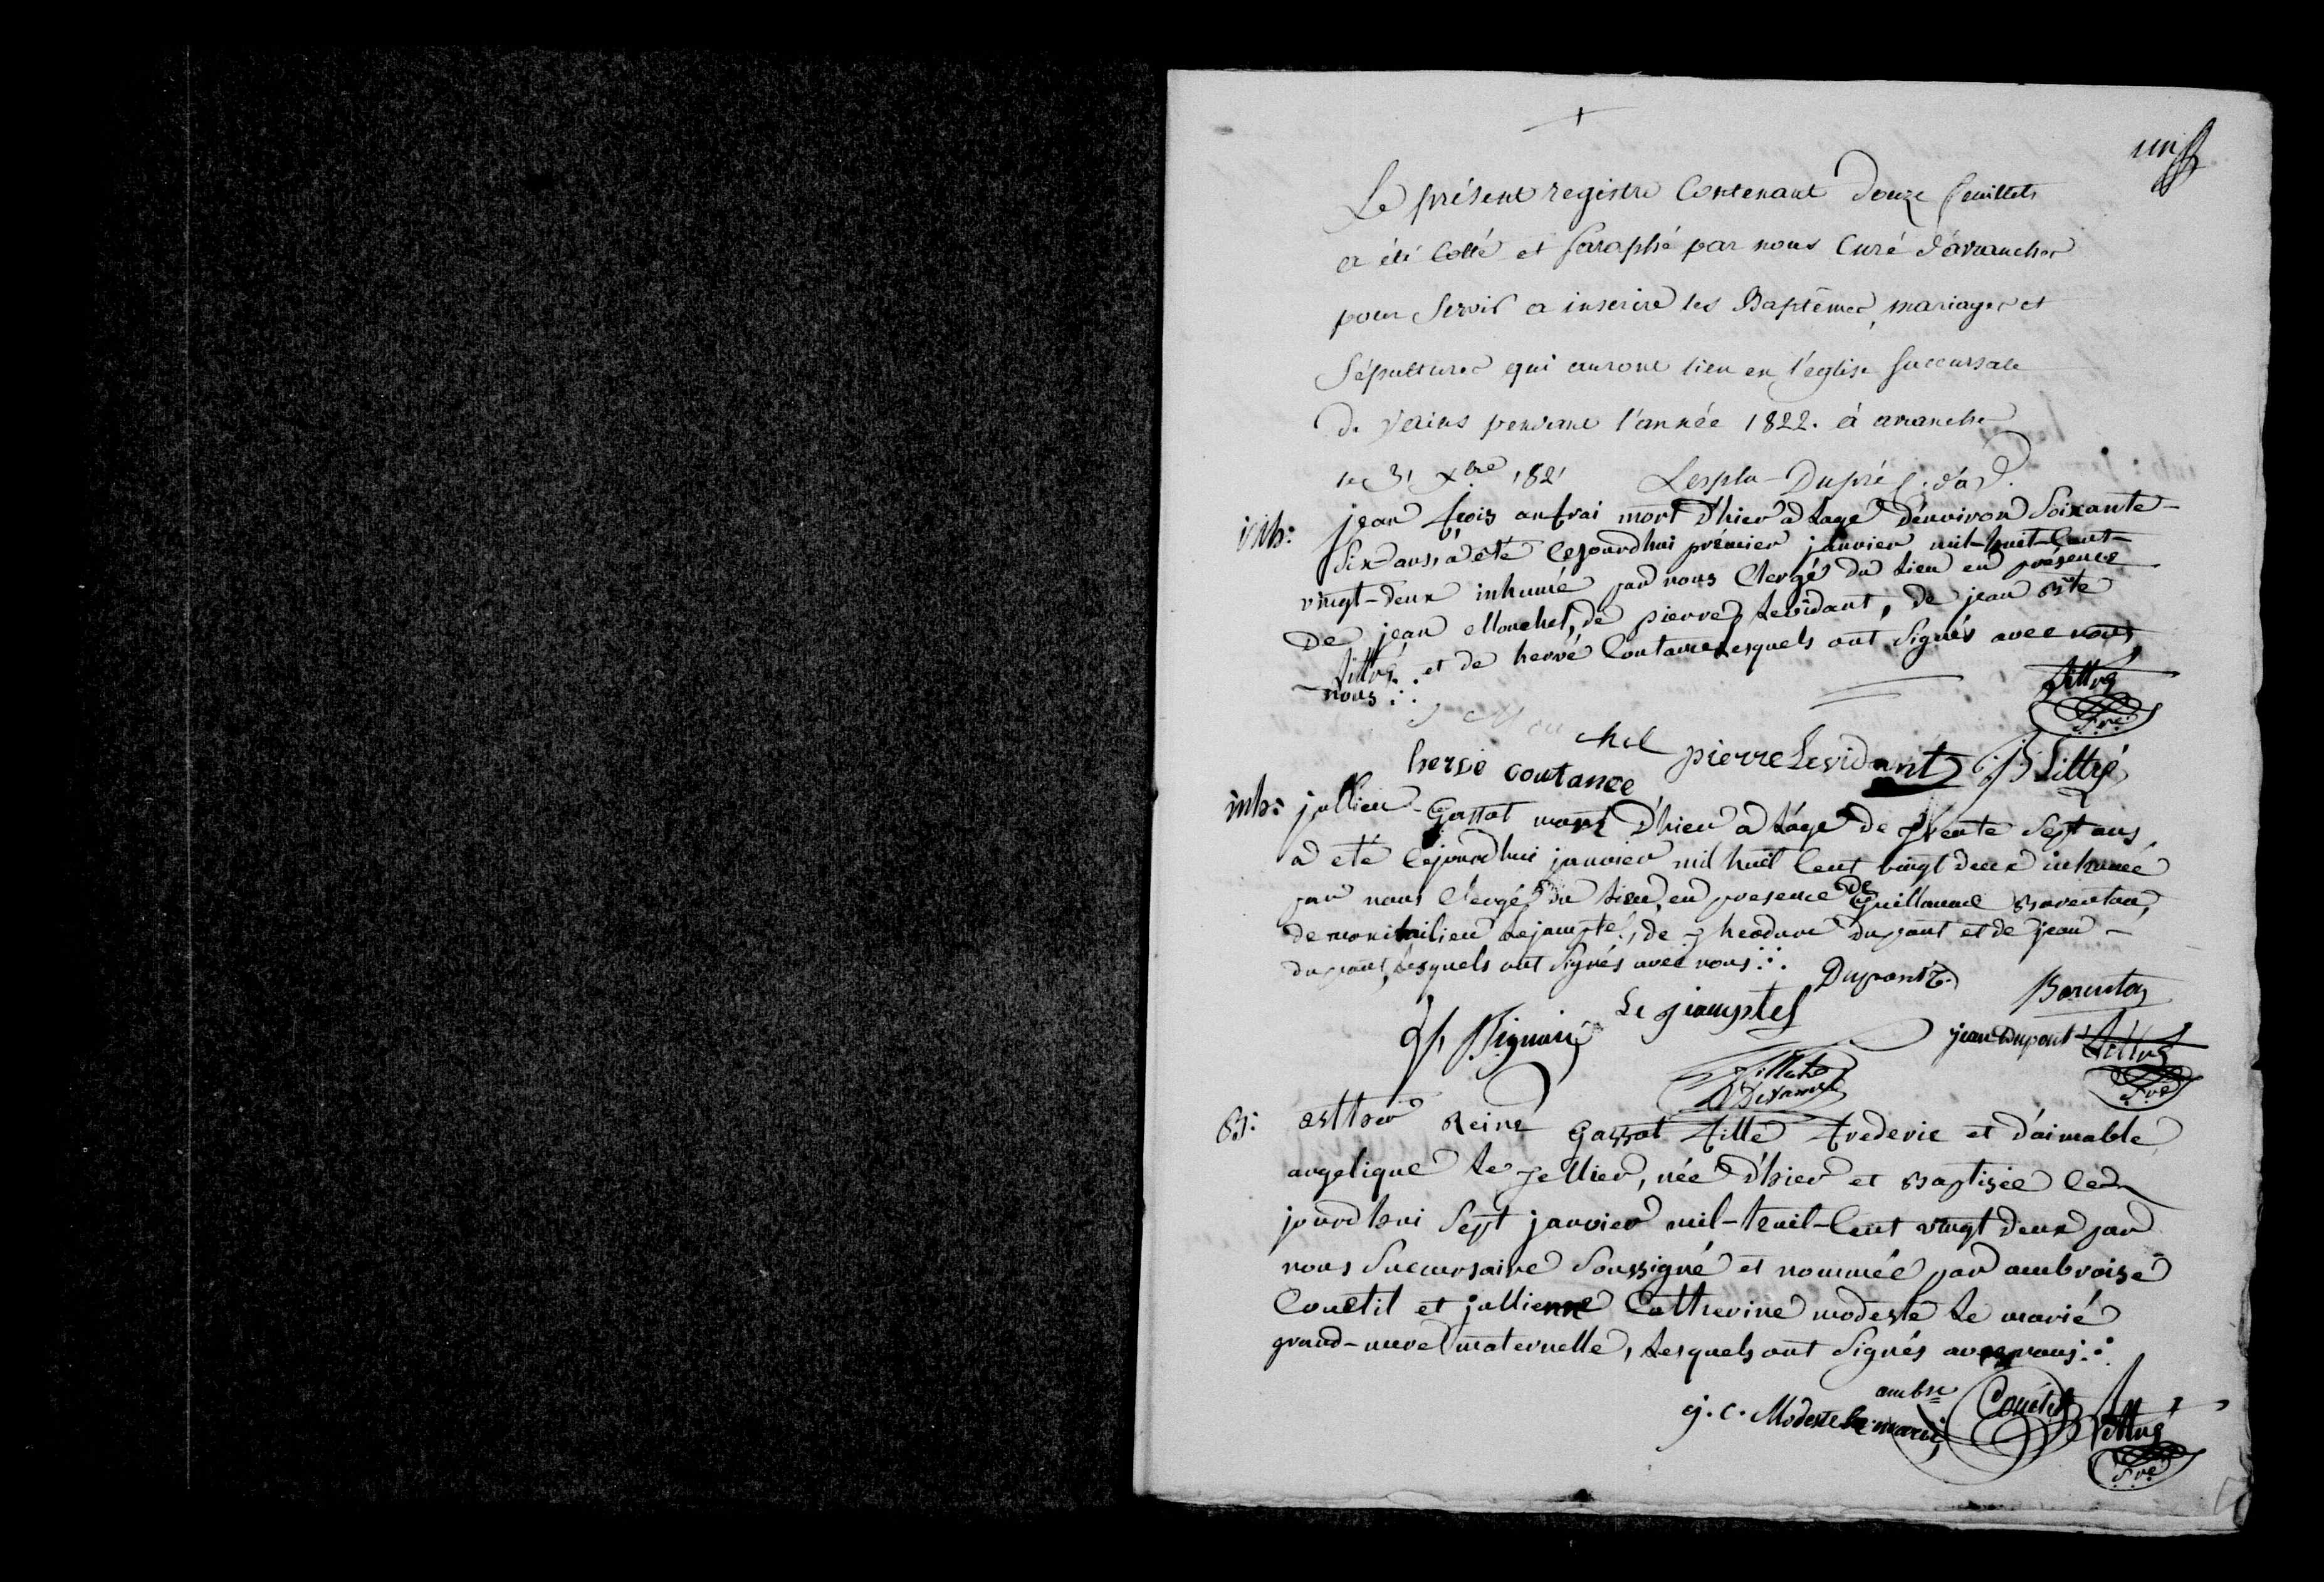 un
Le présent registre Contenant douze feuillets
a été Cotté et Paraphé par nous Curé d'avranches
pour Servir a inscrire les Baptêmes, mariages et
Sépultures qui auront lieu en l'église Succursale
de Vains pendant l'année 1822. à avranches
le 31 Xbre 1821 Lesplu-Dupré C. d'a.
inh: jean frois anfrai mort d'hier a Lage d'environ Soixante-
Six-ans, a été Cejourdhui premier janvier mil-huit-Cent-
vingt-deux inhumé par nous Clergé du Lieu en présence
De jean Mouchel, de pierre Levidant, de jean Bte
Littré et de hervé Coutance Lesquels ont Signés avec nous
nous ∴
Littré
J Mouchel pierre Levidant J B Littré
hervé coutance Sre
inh: jullien Gassot mort D'hier a Lâge de trente Sept ans
a été Cejourdhui janvier mil huit Cent vingt deux inhumé
par nous Clergé du Lieu, en presence de Guillaume Barenton,
de Lejampté, de theodore dupont et de jean
dupont, Lesquels ont Signés avec nous ∴ Dupont Barenton
Le jamptel
jean Dupont Littré
Sre
B: estther Reine Gassot fille frederic et d'aimable
angelique Le tellier, née D'hier et Baptisée Ce
jourdhui Sept janvier mil-huit-Cent vingt deux par
nous Succursaire Soussigné et nommée par ambroise
Couetil et jullienne Catherine modeste Le marié
grand-mere maternelle, Lesquels ont Signés avec nous ∴
ambse Couétil Littré
j. c. Modeste le marié Sre